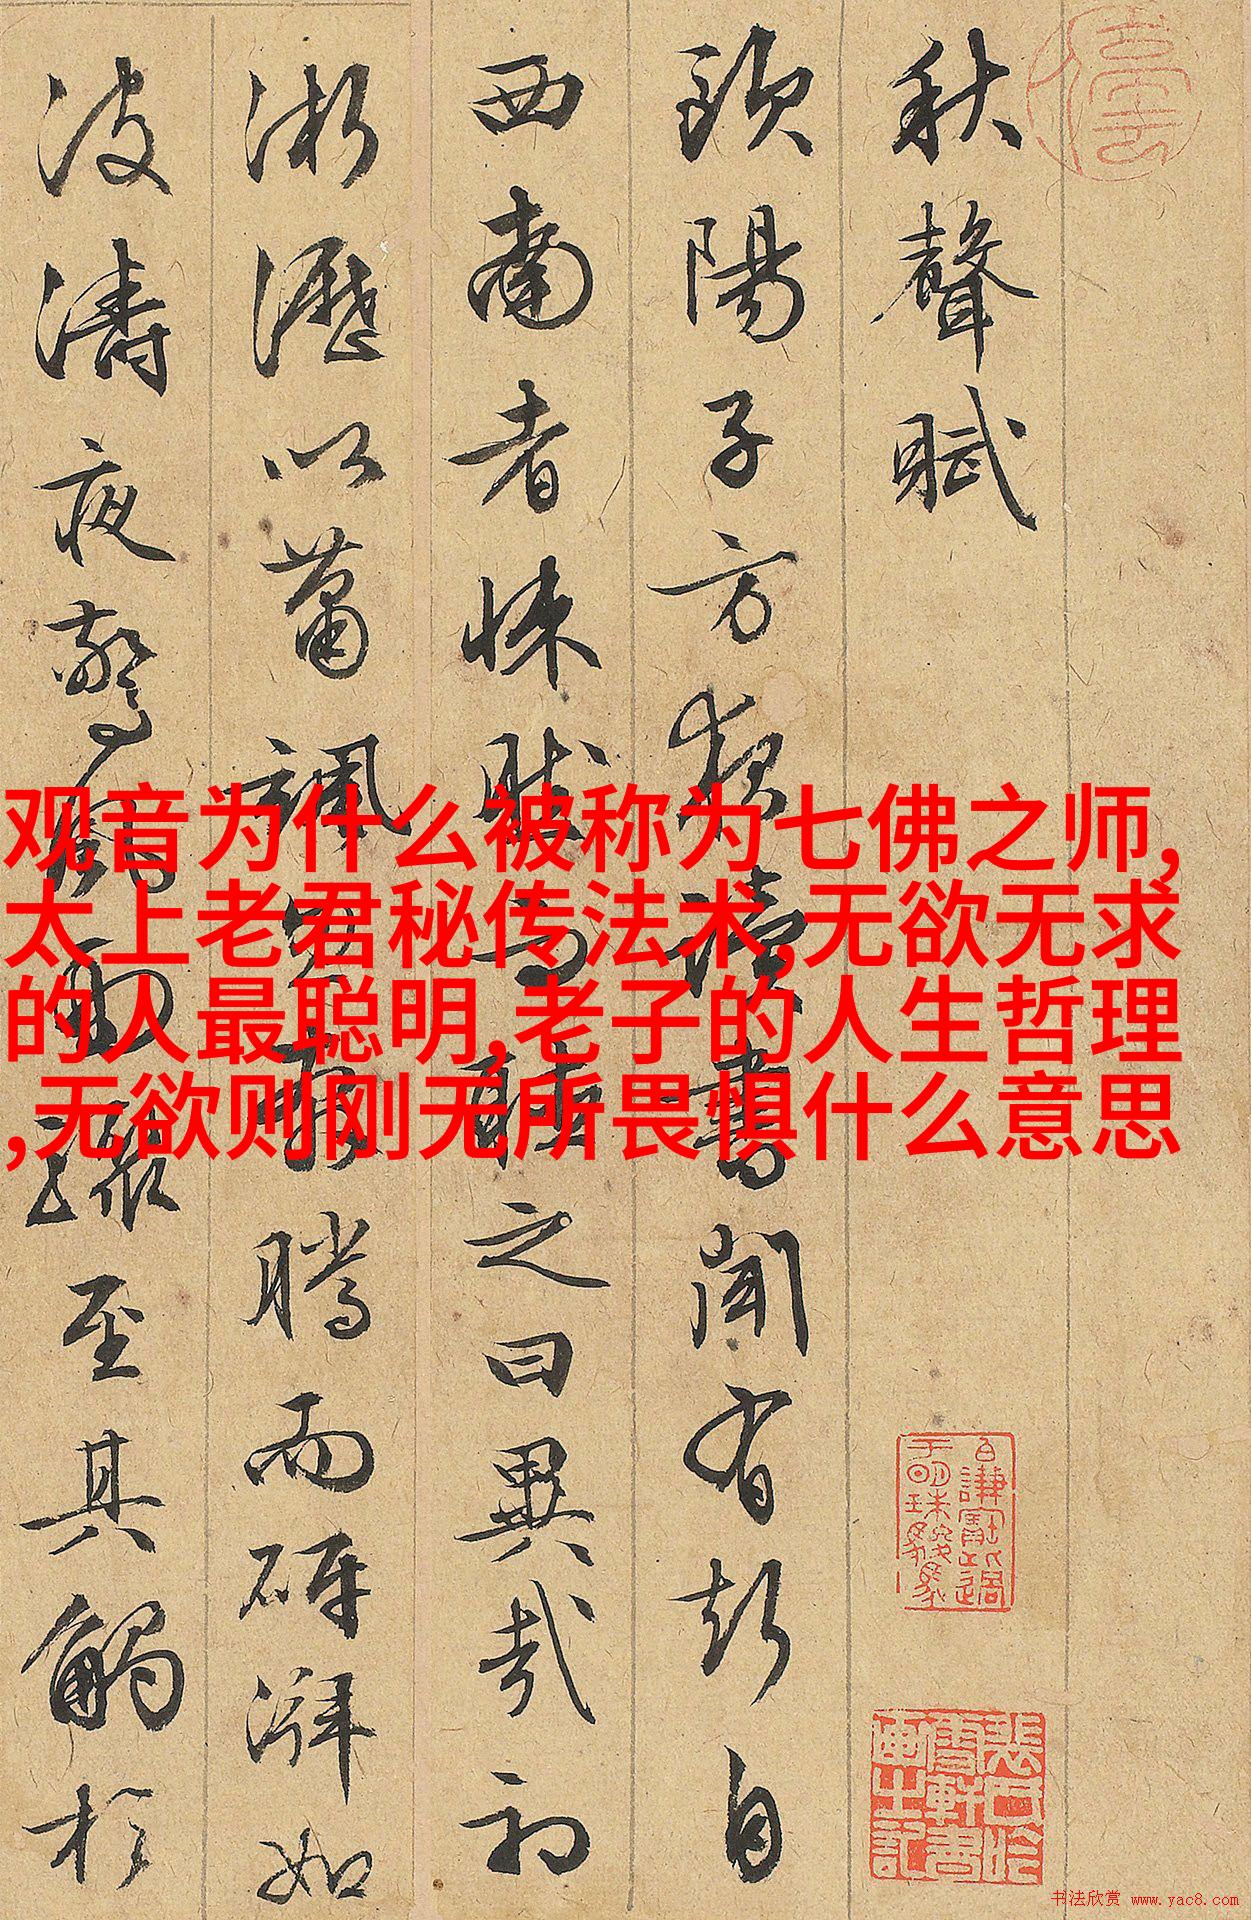 秋聲賦
歐陽子方夜讀書聞有聲自
西南者悚然而聽之曰異哉初
淅瀝以蕭颯忽奔騰而砰湃如
波濤夜驚風雨驟至其觸於
观音为什么被称为七佛之师,
太上老君秘传法术,无欲无求
的人最聪明,老子的人生哲理
,无欲则刚无所畏惧什么意思
书法欣赏 www.yac8.com